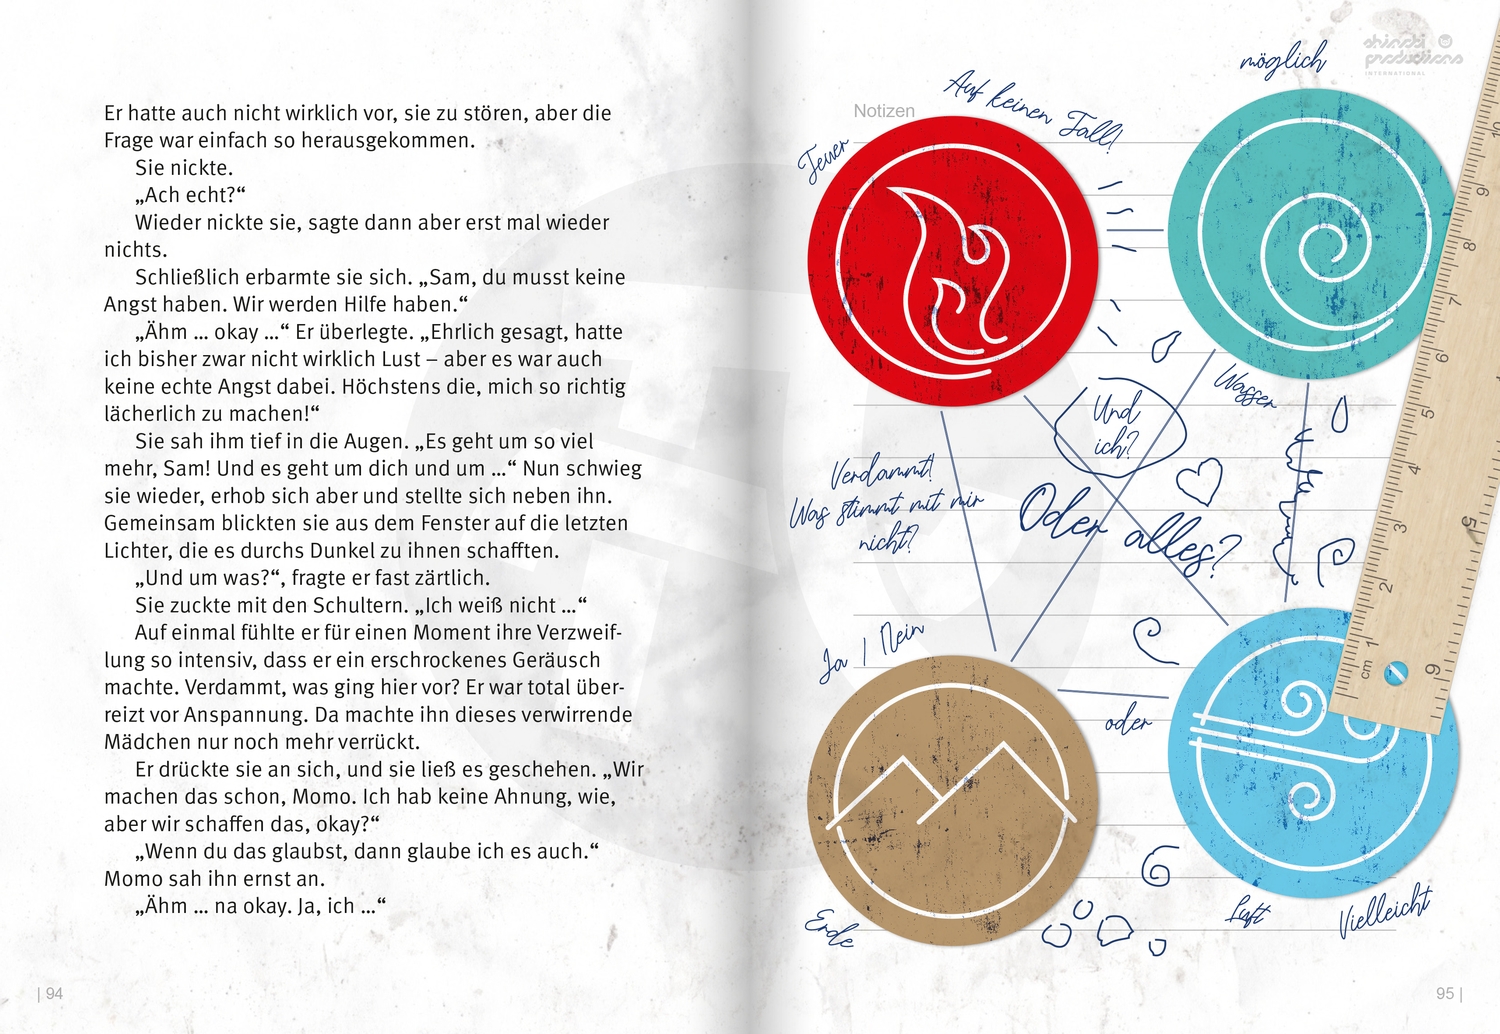 Er hatte auch nicht wirklich vor, sie zu stören, aber die
Frage war einfach so herausgekommen.
Sie nickte.
„Ach echt?“
Wieder nickte sie, sagte dann aber erst mal wieder
nichts.
Schließlich erbarmte sie sich. „Sam, du musst keine
Angst haben. Wir werden Hilfe haben.“
„Ähm ... okay ...“ Er überlegte. „Ehrlich gesagt, hatte
ich bisher zwar nicht wirklich Lust – aber es war auch
keine echte Angst dabei. Höchstens die, mich so richtig
lächerlich zu machen!“
Sie sah ihm tief in die Augen. „Es geht um so viel
mehr, Sam! Und es geht um dich und um ...“ Nun schwieg
sie wieder, erhob sich aber und stellte sich neben ihn.
Gemeinsam blickten sie aus dem Fenster auf die letzten
Lichter, die es durchs Dunkel zu ihnen schafften.
„Und um was?“, fragte er fast zärtlich.
Sie zuckte mit den Schultern. „Ich weiß nicht ...“
Auf einmal fühlte er für einen Moment ihre Verzweif-
lung so intensiv, dass er ein erschrockenes Geräusch
machte. Verdammt, was ging hier vor? Er war total über-
reizt vor Anspannung. Da machte ihn dieses verwirrende
Mädchen nur noch mehr verrückt.
Er drückte sie an sich, und sie ließ es geschehen. „Wir
machen das schon, Momo. Ich hab keine Ahnung, wie,
aber wir schaffen das, okay?“
„Wenn du das glaubst, dann glaube ich es auch.“
Momo sah ihn ernst an.
„Ähm ... na okay. Ja, ich ...“
| 94
shinobi
productions
INTERNATIONAL
möglich
Auf keinen Fall!
Notizen
Feuer
Wasser
Und
ich?
Verdammt!
Was stimmt mit mir
nicht?
Oder alles?
Ja / Nein
oder
Erde
Luft
Vielleicht
10
9
8
7
6
5
4
3
2
1
cm
5
6
95 |